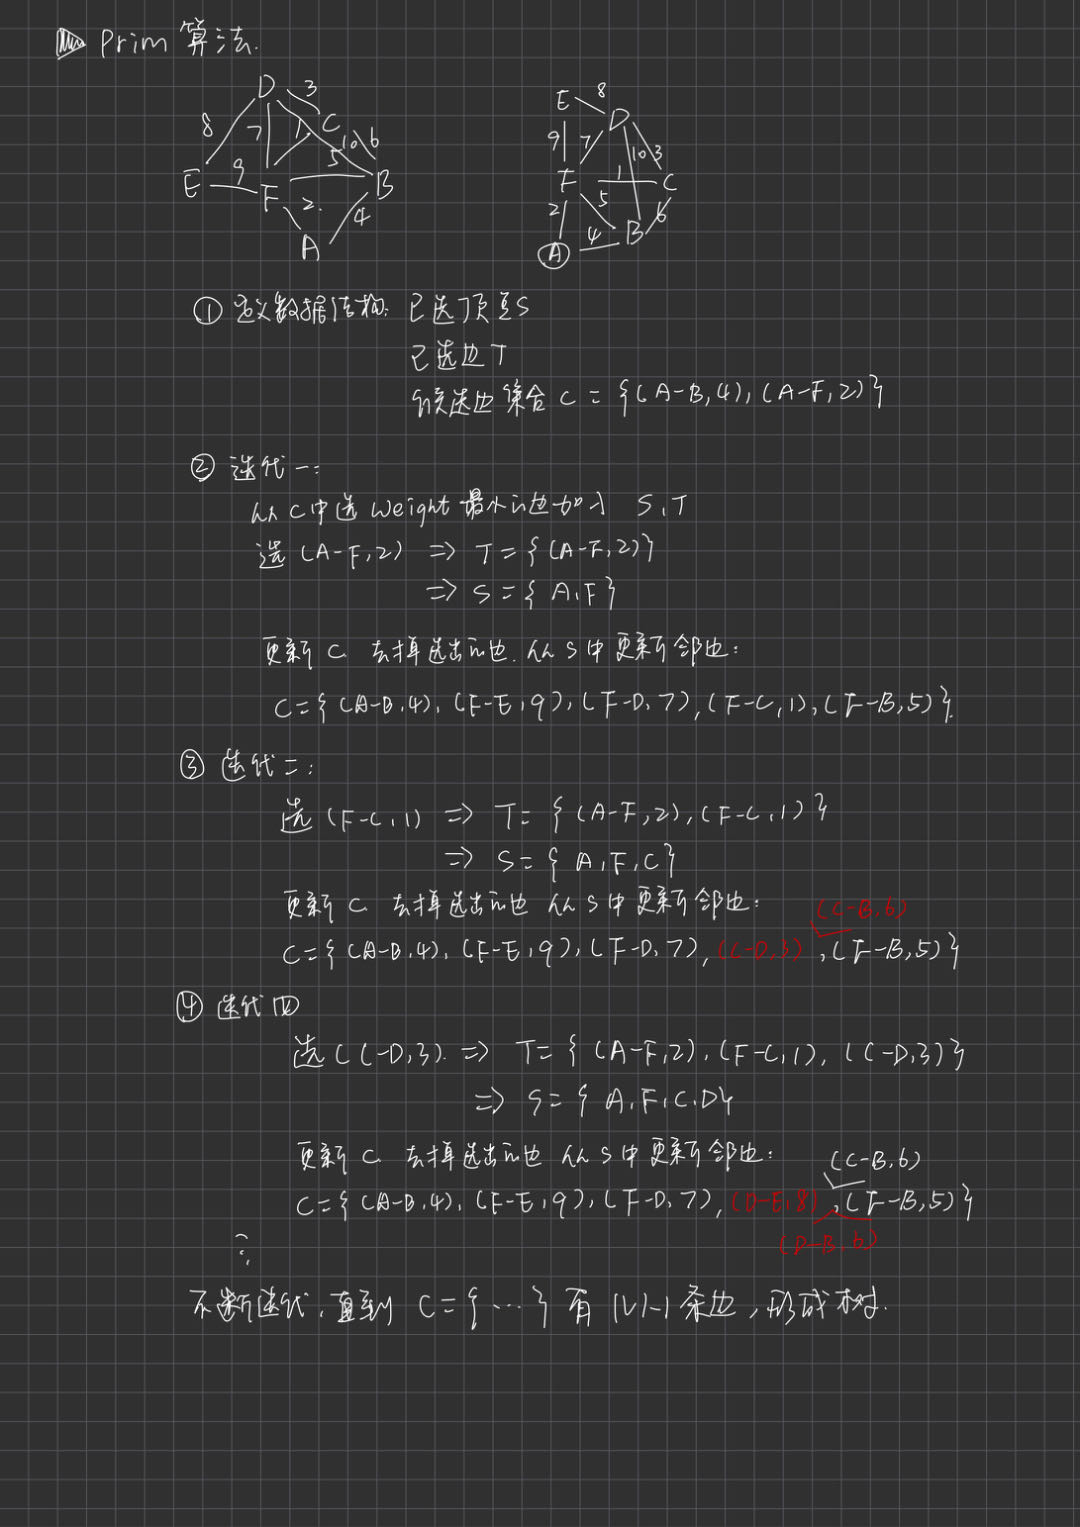 Prim 算法.
D 3
8 7 1 C 10 6
E 9 F 5 B
2. 4
A
E 8 D
9 7 10 3
F 1 C
2 5 6
A 4 B
① 定义数据结构: 已选顶点S
已选边T
候选边集合 C = {(A-B,4), (A-F,2)}
② 迭代一:
从C中选 weight 最小的边加入 S,T
选 (A-F,2) => T={(A-F,2)}
=> S={A,F}
更新C 去掉选出的边.从S中更新邻边:
C={(A-B,4), (F-E,9), (F-D,7), (F-C,1), (F-B,5)}.
③ 迭代二:
选 (F-C,1) => T= {(A-F,2),(F-C,1)}
=> S={A,F,C}
更新C 去掉选出的边 从S中更新邻边: (C-B,6)
C={(A-B,4), (F-E,9), (F-D,7), (C-D,3) ,(F-B,5)}
④ 迭代四
选 (C-D,3). => T={(A-F,2), (F-C,1), (C-D,3)}
=> S={A,F,C,D}
更新C 去掉选出的边 从S中更新邻边: (C-B,6)
C={(A-B,4), (F-E,9), (F-D,7), (D-E,8) ,(F-B,5)}
(D-B,6)
不断迭代,直到 C={...} 有 |V|-1 条边,形成树.